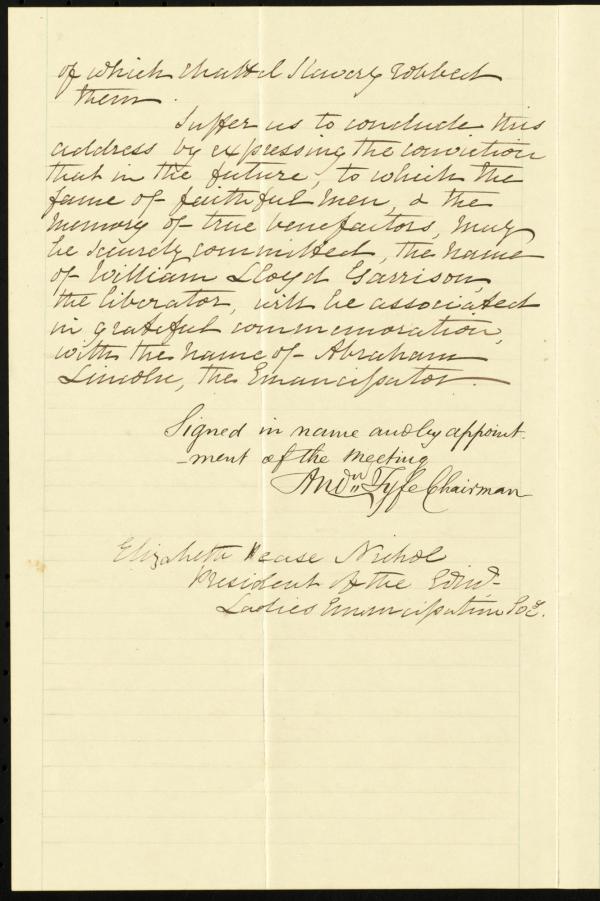 of which chattel Slavery robbed
them.
Suffer us to conclude this
address by expressing the conviction
that in the future, to which the
fame of faithful men, & the
memory of true benefactors, may
be securely committed, the name
of William Lloyd Garrison,
the liberator, will be associated
in grateful commemoration,
with the name of Abraham
Lincoln, the Emancipator.
Signed in name and by appoint-
-ment of the meeting
Andw Fyfe Chairman
Elizabeth Pease Nichol
President of the Edinr
Ladies Emancipation Soc.